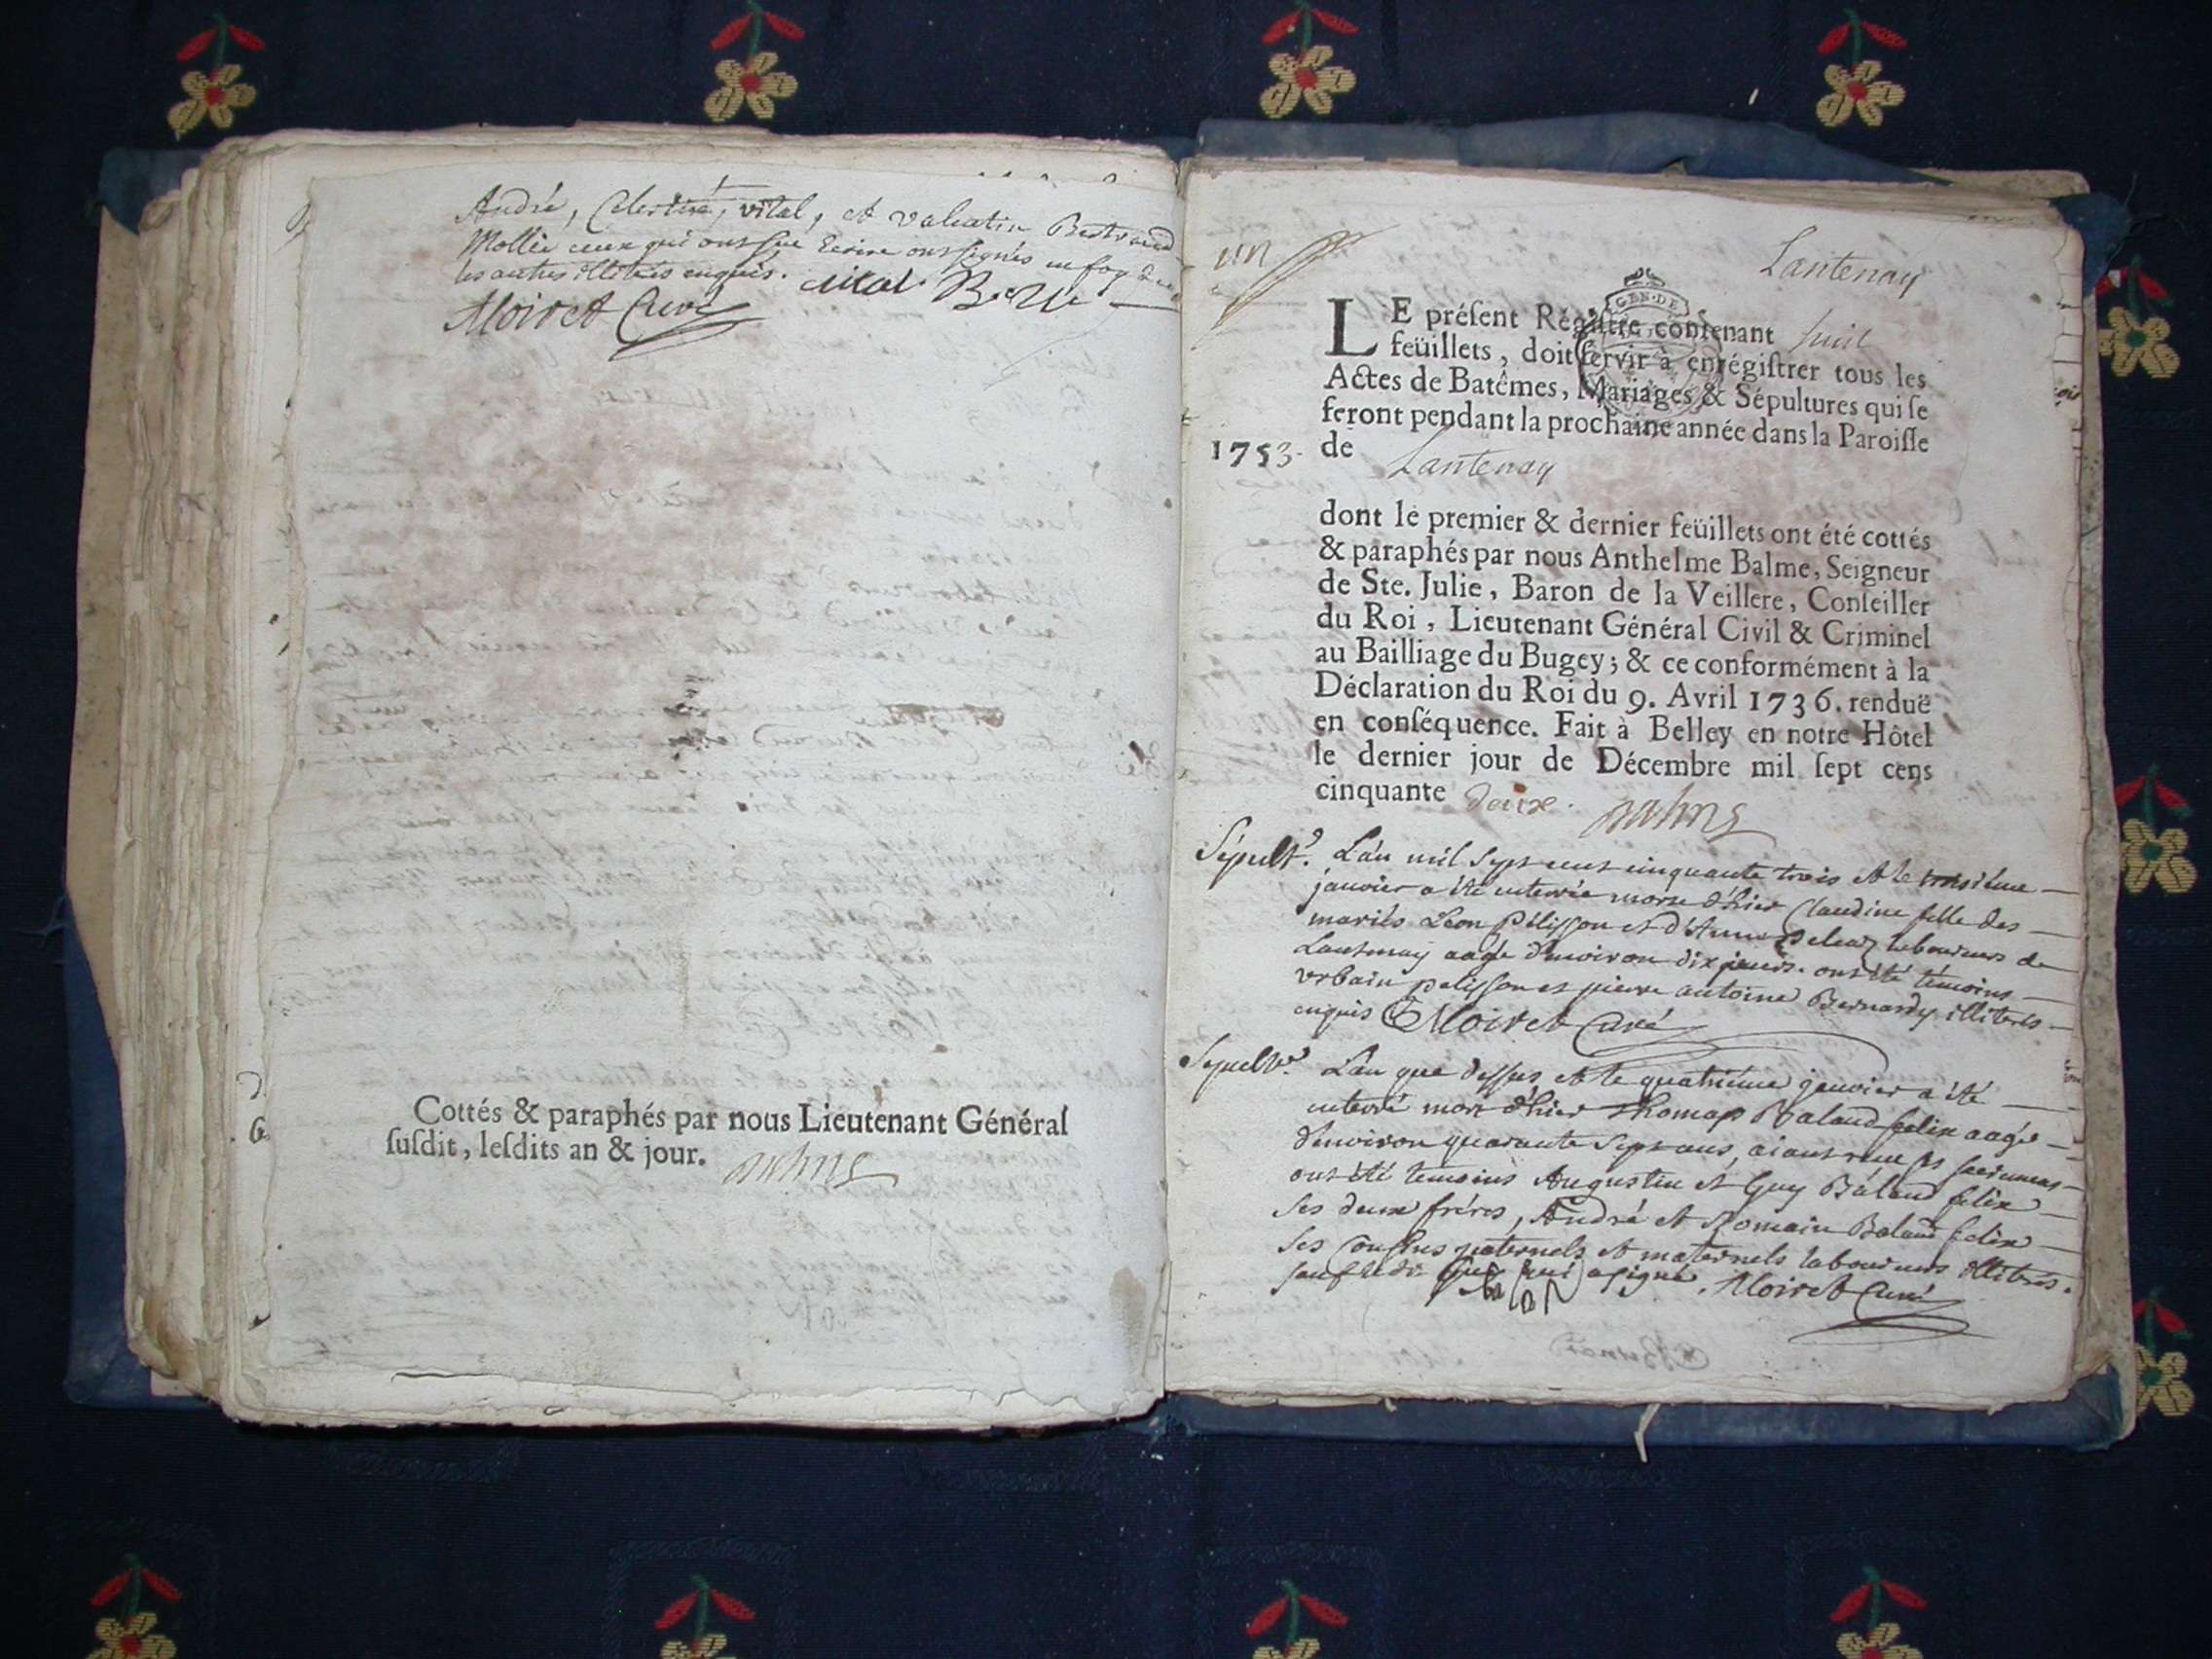 André, Celestin, vital, et valentin Bertrand
Mollie ceux qui ont sçu Ecrire ont signés en foy de
les autres illiterés enquis.
Moiret Curé
Cottés & paraphés par nous Lieutenant Général
ſuſdit, leſdits an & jour.
un
Lantenay
GEN·DE
LE préſent Régiſtre contenant huit
feüillets, doit ſervir à enrégiſtrer tous les
Actes de Batêmes, Mariages & Sépultures qui ſe
feront pendant la prochaine année dans la Paroiſſe
1753. de Lantenay
dont le premier & dernier feüillets ont été cottés
& paraphés par nous Anthelme Balme, Seigneur
de Ste. Julie, Baron de la Veillere, Conſeiller
du Roi, Lieutenant Général Civil & Criminel
au Bailliage du Bugey; & ce conformément à la
Déclaration du Roi du 9. Avril 1736. renduë
en conſéquence. Fait à Belley en notre Hôtel
le dernier jour de Décembre mil ſept cens
cinquante deux.
Sépult. L'an mil sept cent cinquante trois et le troisiéme
janvier a été enterrée morte d'hier Claudine fille des
mariés Léon Pélisson et d'Anne laboureurs de
Lantenay aagée d'environ dix jours. ont été témoins
urbain pelisson et pierre antoine Bernardy illiterés
enquis Moiret Curé
Sepult. L'an que dessus et le quatriéme janvier a été
enterré mort d'hier Thomas Baland felix aagé
d'environ quarante sept ans, aiant reçu ses sacremens
ont été temoins Augustin et Guy Baland felix
ses deux fréres, André et Romain Baland felix
ses cousins paternels et maternels laboureurs illiterés.
sauf ledit Guy qui a signé. Moiret Curé